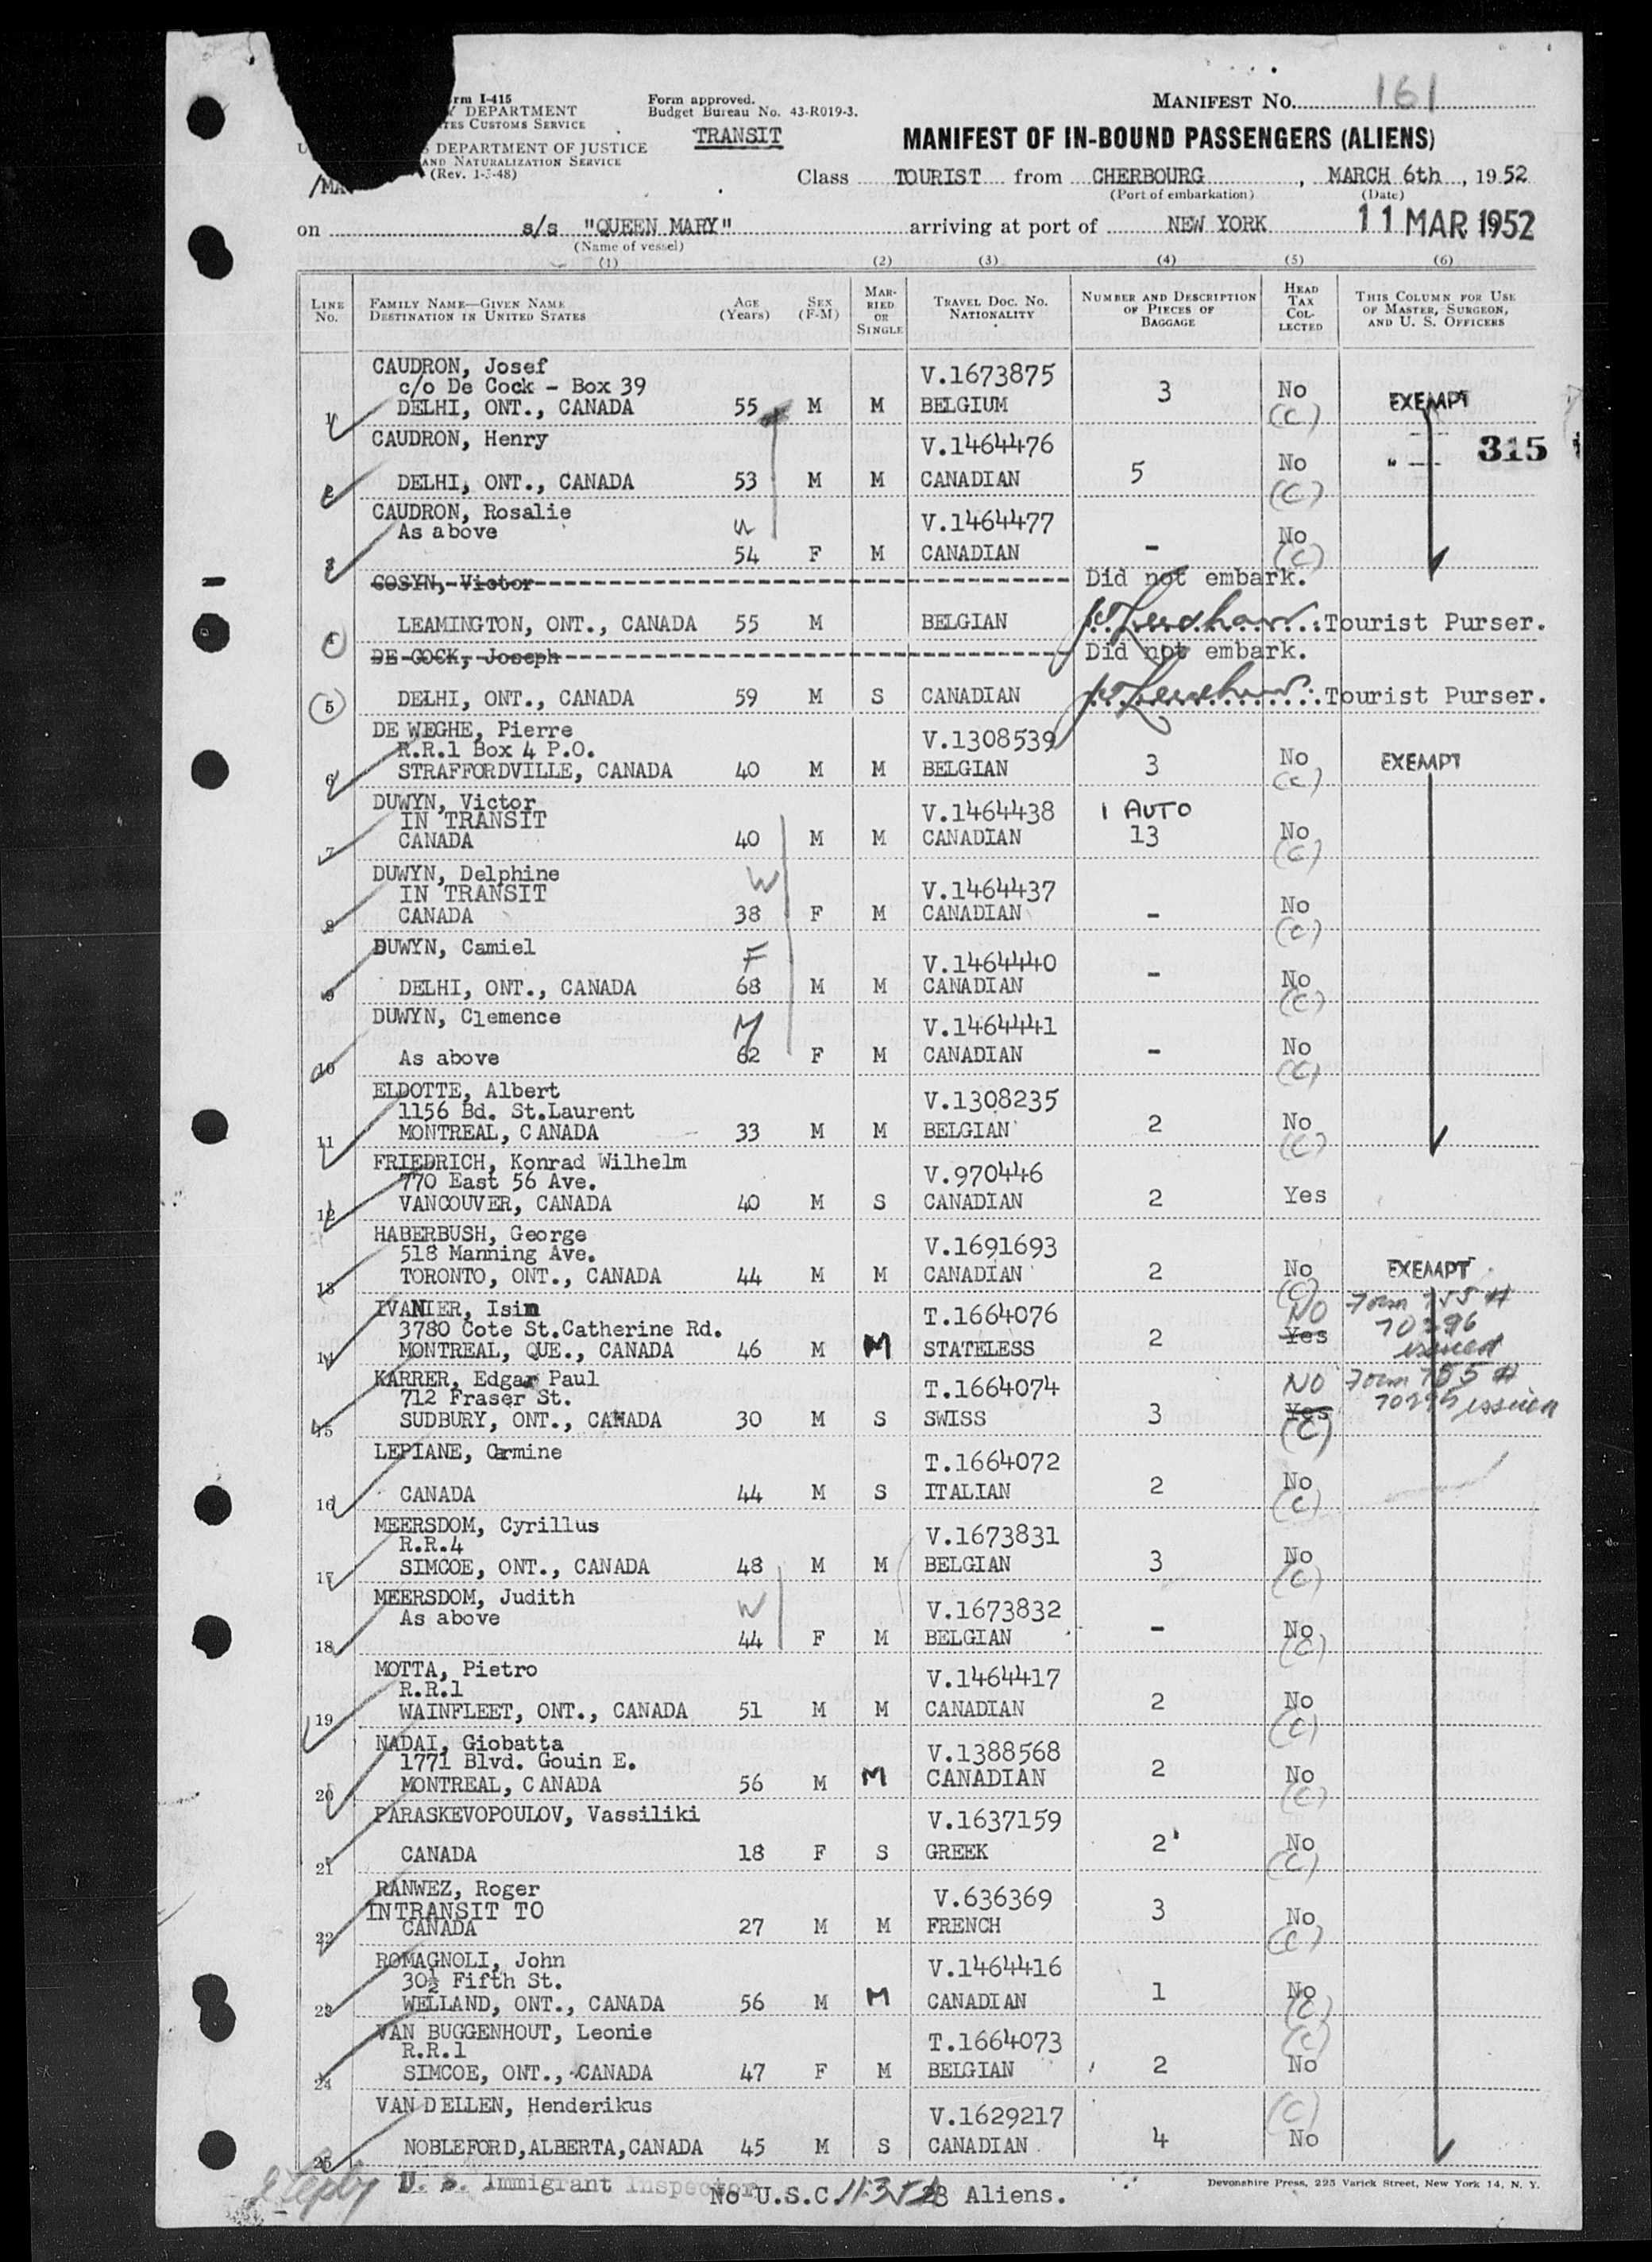 rm I-415
DEPARTMENT
TES CUSTOMS SERVICE
DEPARTMENT OF JUSTICE
AND NATURALIZATION SERVICE
(Rev. 1-3-48)
/MA
Form approved.
Budget Bureau No. 43-R019-3.
TRANSIT
MANIFEST NO. 161
MANIFEST OF IN-BOUND PASSENGERS (ALIENS)
Class TOURIST from CHERBOURG, MARCH 6th, 1952
(Port of embarkation) (Date)
on s/s "QUEEN MARY" arriving at port of NEW YORK 11 MAR 1952
(Name of vessel)
(1) (2) (3) (4) (5) (6)
LINE NO. FAMILY NAME—GIVEN NAME DESTINATION IN UNITED STATES AGE (Years) SEX (F-M) MARRIED OR SINGLE TRAVEL DOC. NO. NATIONALITY NUMBER AND DESCRIPTION OF PIECES OF BAGGAGE HEAD TAX COLLECTED THIS COLUMN FOR USE OF MASTER, SURGEON, AND U. S. OFFICERS
CAUDRON, Josef V.1673875
c/o De Cock - Box 39 3 No
1 DELHI, ONT., CANADA 55 M M BELGIUM (C) EXEMPT
CAUDRON, Henry V.1464476 315
2 DELHI, ONT., CANADA 53 M M CANADIAN 5 No (C) "
CAUDRON, Rosalie V.1464477
As above W No
3 54 F M CANADIAN - (C)
COSYN, Victor Did not embark.
4 LEAMINGTON, ONT., CANADA 55 M BELGIAN Tourist Purser.
DE COCK, Joseph Did not embark.
5 DELHI, ONT., CANADA 59 M S CANADIAN Tourist Purser.
DE WEGHE, Pierre V.1308539
R.R.1 Box 4 P.O.
6 STRAFFORDVILLE, CANADA 40 M M BELGIAN 3 No (C) EXEMPT
DUWYN, Victor V.1464438 1 AUTO
IN TRANSIT
7 CANADA 40 M M CANADIAN 13 No (C)
DUWYN, Delphine W V.1464437
IN TRANSIT
8 CANADA 38 F M CANADIAN - No (C)
DUWYN, Camiel F V.1464440
9 DELHI, ONT., CANADA 68 M M CANADIAN - No (C)
DUWYN, Clemence M V.1464441
10 As above 62 F M CANADIAN - No (C)
ELDOTTE, Albert V.1308235
1156 Bd. St.Laurent
11 MONTREAL, CANADA 33 M M BELGIAN 2 No (C)
FRIEDRICH, Konrad Wilhelm V.970446
770 East 56 Ave.
12 VANCOUVER, CANADA 40 M S CANADIAN 2 Yes
HABERBUSH, George V.1691693
518 Manning Ave.
13 TORONTO, ONT., CANADA 44 M M CANADIAN 2 No (C) EXEMPT
IVANIER, Isin T.1664076 NO Form 755 #
3780 Cote St.Catherine Rd. 70296
14 MONTREAL, QUE., CANADA 46 M M STATELESS 2 Yes issued
KARRER, Edgar Paul T.1664074 NO Form 755 #
712 Fraser St. 70295 issued
15 SUDBURY, ONT., CANADA 30 M S SWISS 3 Yes (C)
LEPIANE, Crmine T.1664072
16 CANADA 44 M S ITALIAN 2 No (C)
MEERSDOM, Cyrillus V.1673831
R.R.4
17 SIMCOE, ONT., CANADA 48 M M BELGIAN 3 No (C)
MEERSDOM, Judith W V.1673832
As above
18 44 F M BELGIAN - No (C)
MOTTA, Pietro V.1464417
R.R.1
19 WAINFLEET, ONT., CANADA 51 M M CANADIAN 2 No (C)
NADAI, Giobatta V.1388568
1771 Blvd. Gouin E.
20 MONTREAL, CANADA 56 M M CANADIAN 2 No (C)
PARASKEVOPOULOV, Vassiliki V.1637159
21 CANADA 18 F S GREEK 2 No (C)
RANWEZ, Roger V.636369
INTRANSIT TO
22 CANADA 27 M M FRENCH 3 No (C)
ROMAGNOLI, John V.1464416
30½ Fifth St.
23 WELLAND, ONT., CANADA 56 M M CANADIAN 1 No (C)
VAN BUGGENHOUT, Leonie T.1664073 (C)
R.R.1
24 SIMCOE, ONT., CANADA 47 F M BELGIAN 2 No
VAN DELLEN, Henderikus V.1629217 (C)
25 NOBLEFORD, ALBERTA, CANADA 45 M S CANADIAN 4 No
U. S. Immigrant Inspector
No U.S.C. 23 Aliens.
Devonshire Press, 225 Varick Street, New York 14, N. Y.